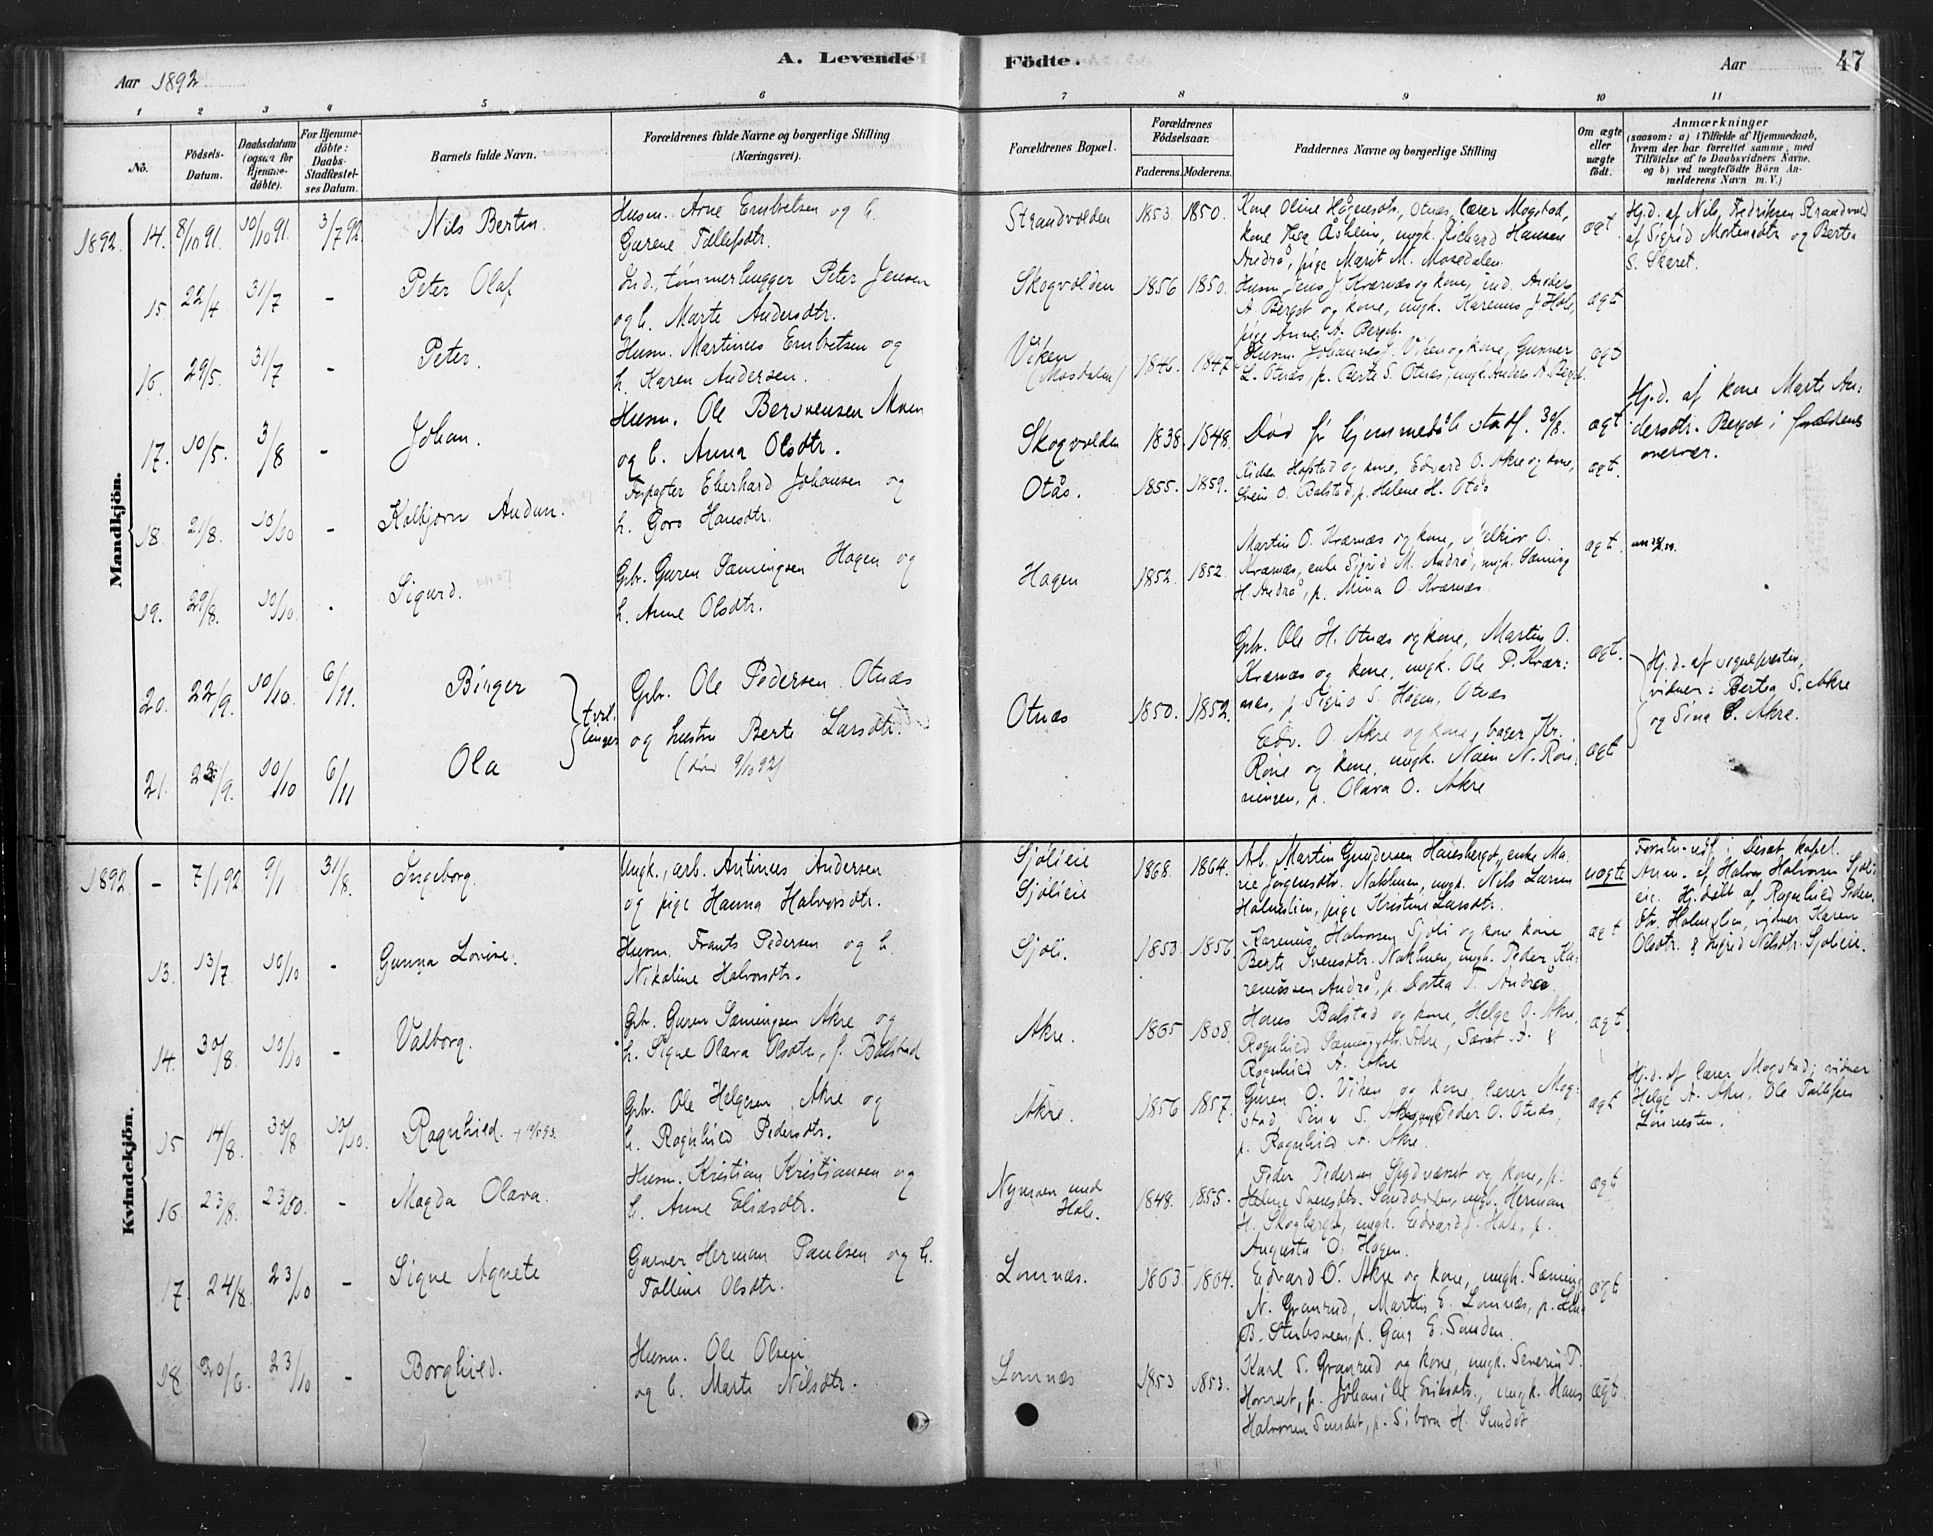 Aar 1892
A. Levende
Födte.
Aar
47
1 2 3 4 5 6 7 8 9 10 11
No.
Födsels-Datum.
Daabsdatum (ogsaa for Hjemme-döbte).
For Hjemme-döbte: Daabs-Stadfæstel-ses Datum.
Barnets fulde Navn.
Forældrenes fulde Navne og borgerlige Stilling (Næringsvei).
Forældrenes Bopæl.
Forældrenes Födselsaar.
Faderens. Moderens.
Faddernes Navne og borgerlige Stilling
Om ægte eller uægte födt.
Anmærkninger
(saasom: a) i Tilfælde af Hjemmedaab,
hvem der har forrettet samme, med
Tilföielse af to Daabsvidners Navne.
og b) ved uægtefödte Börn An-
melderens Navn m. V.)
Mandkjön.
1892. 14. 8/10 91. 10/10 91. 3/7 92. Nils Bertin.
Husm. Arne Embretsen og h.
Gurene Tollefsdtr.
Strandvolden 1853. 1850.
Kone Oline Hågensdtr. Otnæs, lærer Mogstad,
kone Thea Åsheim, ungk. Richard Hansen
Andrå, pige Marit M. Mosedalen.
ægt.
Hj.d. af Nils Fredriksen Strandvold
af Sigrid Mortensdtr og Bertea
S. Skaret.
15 22/4 31/7 - Peter Olaf
Ind., tømmerhugger Peter Jensen
og h. Marte Andersdtr.
Skogvolden 1856 1850.
Husm Jens J. Kværnæs og kone, ind. Anders
A Bergst og kone, ungk. Karenus J Hole,
pige Anne A. Bergst.
ægt
16. 29/5. 31/7 - Peter.
Husm. Martinus Embretsen og
h. Karen Andersen.
Viken (Mosdalen) 1846. 1847
Husm. Johannes J. Viken og kone, Gunner
L. Otnæs, p. Berte S. Otnæs, ungk. Anders A. Bergst.
ægt
17. 10/5. 3/8 - Johan.
Husm. Ole Bersvensen Moen
og h. Anna Olsdtr.
Skogvolden 1838. 1848.
Død før hjemmedåb stadf. 30/8.
ægt
Hj.d. af kone Marte An:
dersdtr. Bergst i forældrenes
overvær.
18. 21/8. 10/10 - Kolbjørn Audun.
Forpagter Eberhard Johansen og
h. Goro Hansdtr.
Otås. 1855. 1859.
Hofstad og kone, Edvard O. Akre og kone,
Svein O. Balstad, p. Helene H. Otås
ægt.
19. 29/8. 10/10. - Sigurd.
Gbr. Guren Sæmingsen Hagen og
h. Anne Olsdtr.
Hagen 1852. 1852.
Martin O. Kværnæs og kone, Melkior O.
Kværnæs, enke Sigrid M. Andrå, ungk. Sæming
H. Andrå, p. Mina O. Kværnæs
ægt.
20. 22/9. 10/10. 6/11. Binger
21. 22/9. 10/10 6/11 Ola
tvil-
linger
Gbr. Ole Pedersen Otnæs
og hustru Berte Larsdtr.
(død 9/10 92)
Otnæs 1850. 1852.
Gbr. Ole H. Otnæs og kone, Martin O.
Kværnæs og kone, ungk. Ole P. Kvær:
næs, p. Sigrid S. Hagen, Otnæs
Edv. O. Akre og kone, bager Kr.
Rone og kone, ungk. N. Røn:
ningen, p. Olava O. Akre
ægt.
ægt
Hj.d. af sognepresten,
vidner: Bertea S. Akre
og Sina S. Akre.
Kvindekjön.
1892 - 7/1 92 9/1 31/8. Ingeborg.
Ungk., arb. Antinus Andersen
og pige Hanna Halvorsdtr.
Sjølieie
Sjølieie
1868. 1864.
Arb. Martin Gundersen Hanesbergst, enke Ma-
rie Jørgensdtr. Nakhnen, ungk. Nils Larsen
Holmelien, pige Kristine Larsdtr.
uægte
Anm. af Halvor Halvorsen Sjøli-
eie. Hj.døbt af Ragnhild Peder-
dtr. Holmelien, vidner Karen
Olsdtr. & Sigrid Nilsdtr. Sjøliеie.
13. 13/7 10/10 - Gunna Lovise.
Husm. Frants Pedersen og h.
Nikoline Halvorsdtr.
Sjøli. 1853. 1856.
Karenus Halvorsen Sjøli og kone kone
Berte Svensdtr. Nakhnen, ungk. Peder Ka-
renussen Andrå, p. Dortea T. Andrå.
ægt
14. 30/8. 10/10 - Valborg.
Gbr. Guren Sæmingsen Akre og
h. Signe Olava Olsdtr, f. Balstad
Akre. 1865 1868.
Hans Balstad og kone, Helge O. Akre,
Ragnhild Sæmingsdtr. Akre, Sarat A. &
Ragnhild A. Akre
ægt
15 14/8. 30/8 10/10. Ragnhild.
Gbr. Ole Helgesen Akre og
h. Ragnhild Pedersdtr.
Akre. 1856 1857.
Guren O. Viken og kone, lærer Mog-
stad, Sina S. Akre, ungk. Peder O. Otnæs,
p. Ragnhild A. Akre.
ægt
Hj.d. af lærer Mogstad; vidner
Helge A. Akre, Ole Tollefsen
Lomnesten.
16. 23/8. 23/10. - Magda Olava.
Husm. Kristian Kristiansen og
h. Anne Eliasdtr.
Nymoen und. Hole. 1848. 1855.
Peder Pedersen Sygdneset og kone, p.
Helene Svensdtr. Sandodden, ungk. Herman
H. Skogberget, ungk. Edvard J. Hole, p.
Augusta O. Hagen.
ægt
17. 24/8. 23/10 - Signe Agnete
Garver Herman Paulsen og h.
Tolline Olsdtr.
Lomnæs. 1863 1864.
Edvard O. Akre og kone, ungk. Sæming
N. Granrud, Martin E. Lomnæs, p. Lina
B. Stubsveen, p. Gang E. Sanden.
ægt
18 20/6. 23/10 - Borghild.
Husm. Ole Olsen
og h. Marte Nilsdtr.
Lomnæs 1853 1853.
Karl S. Granrud og kone, ungk. Severin T.
Hornset, p. Johanille Eriksdtr., ungk. Hans
Halvorsen Sundet, p. Siborn H. Sundet
ægt.